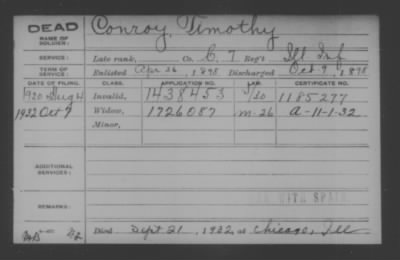 DEAD Conroy, Timothy
NAME OF SOLDIER:
SERVICE: Late rank, Co. C, 7 Reg't Ill Inf
TERM OF SERVICE: Enlisted Apr 26, 1898 Discharged Oct 9, 1898
DATE OF FILING. CLASS. APPLICATION NO. CERTIFICATE NO.
1920 Aug 4 Invalid, 1438453 1185277
1932 Oct 7 Widow, 1726087 M-26 A-11-1-32
Minor,
ADDITIONAL SERVICES:
WAR WITH SPAIN
REMARKS:
Died Sept 21, 1932, at Chicago, Ill